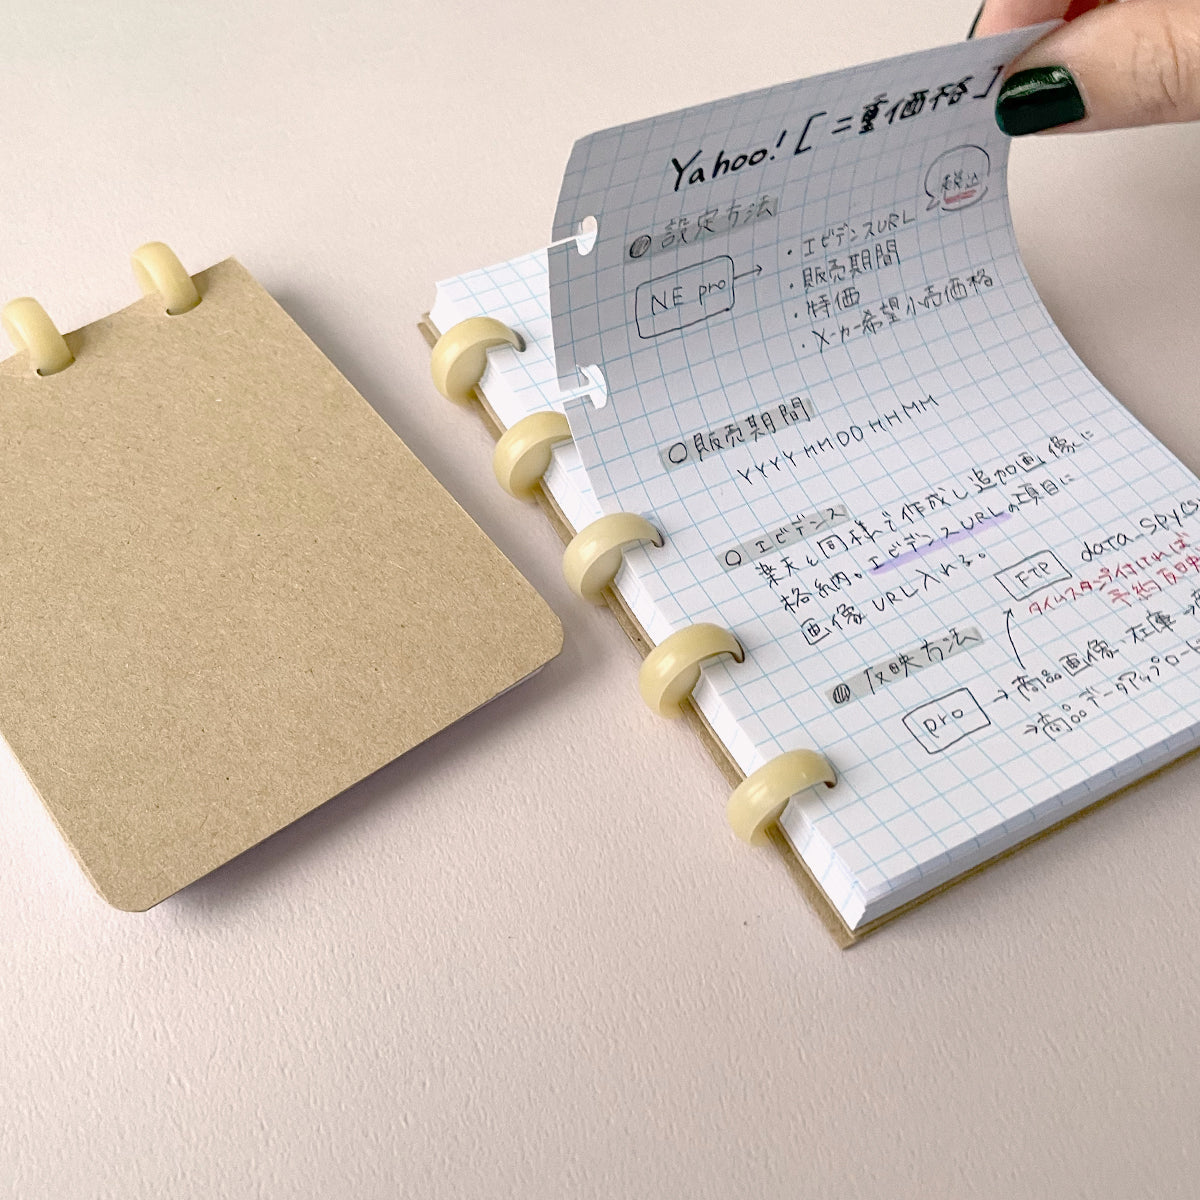 Yahoo! [二重価格]
税込
設定方法
NE pro →
・エビデンスURL
・販売期間
・特価
・メーカー希望小売価格
○販売期間
YYYYMMDDHHMM
○エビデンス
楽天と同様で作成し追加画像に
格納。エビデンスURLの項目に
画像URL入れる。
FTP data_spy
タイムスタンプ付ければ
予約反映
反映方法
pro →商品画像、在庫→
→商品データアップロード